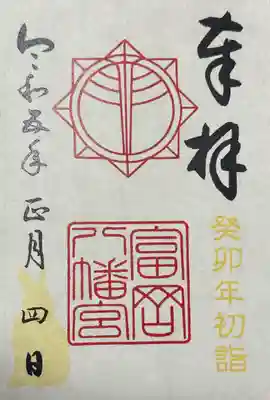 奉拝
癸卯年初詣
富岡
八幡宮
令和五年 正月 四日